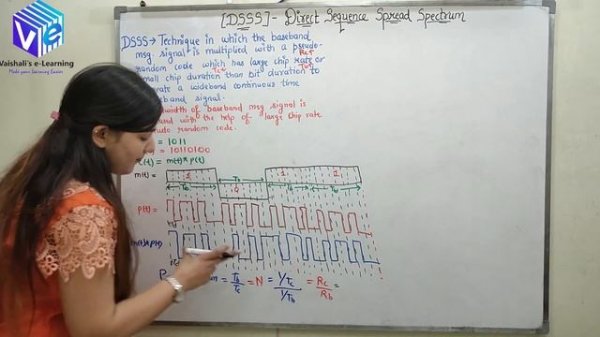 Ve
Vaishali's e-Learning
Make your Learning Easier
[DSSS]- Direct Sequence Spread Spectrum
DSSS → Technique in which the baseband
msg. signal is multiplied with a pseudo-
random code which has large chip rate or
small chip duration than bit duration to
a wideband continuous time
signal.
of baseband msg signal is
with the help of large chip rate
random code.
= 1011
= 10110100
(t) = m(t)* p(t)
m(t) =
1 0 1 1
p(t) =
m(t)*p(t)
= Tb/Tc = N = 1/Tc / 1/Tb = Rc/Rb =